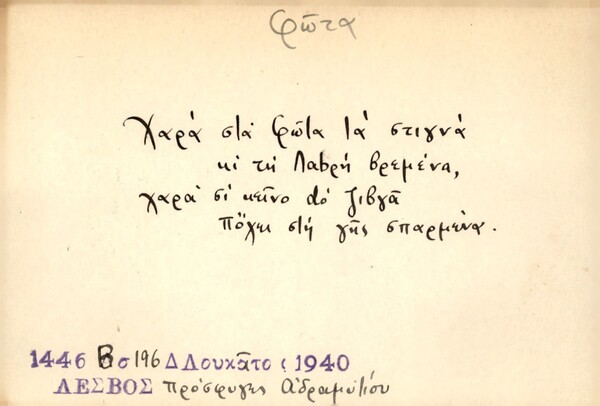 Φῶτα
Χαρὰ στὰ Φῶτα τὰ στιγνὰ
κὶ τὴ Λαbρὴ βρεμένα,
χαρὰ σὶ κεῖνο dὸ ζιβγᾶ
πὄχει στὴ γῆς σπαρμένα.
1446 Β σ 196 Δ Λουκᾶτος 1940
ΛΕΣΒΟΣ πρόσφυγες Ἀδραμυτίου